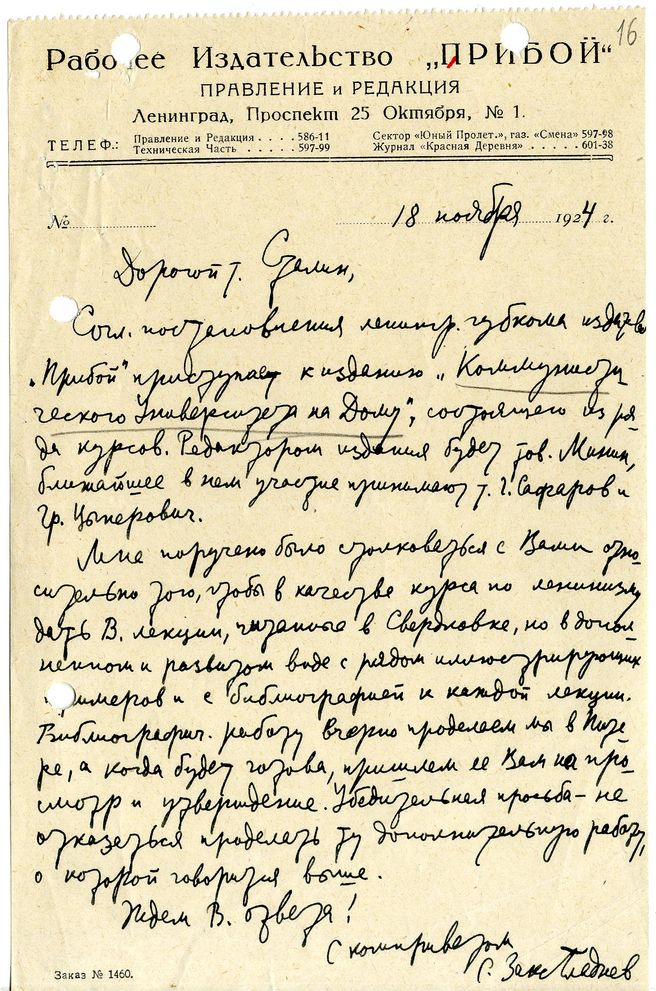 16
Рабочее Издательство „ПРИБОЙ“
ПРАВЛЕНИЕ и РЕДАКЦИЯ
Ленинград, Проспект 25 Октября, № 1.
ТЕЛЕФ.: Правление и Редакция . . . . 586-11 Сектор «Юный Пролет.», газ. «Смена» 597-98
Техническая Часть . . . . . 597-99 Журнал «Красная Деревня» . . . . . 601-38
№ 18 ноября 1924 г.
Дорогой т. Сталин,
Согл. постановления ленингр. губкома издат-во
„Прибой“ приступает к изданию „Коммунисти-
ческого Университета на Дому“, состоящего из ря-
да курсов. Редактором издания будет тов. Минин,
ближайшее в нем участие принимают т. Г. Сафаров и
Гр. Цыперович.
Мне поручено было столковаться с Вами отно-
сительно того, чтобы в качестве курса по ленинизму
дать В. лекции, читанные в Свердловке, но в допол-
ненном и развитом виде с рядом иллюстрирующих
примеров и с библиографией к каждой лекции.
Библиографич. работу вчерне проделаем мы в Пите-
ре, а когда будет готова, пришлем ее Вам на про-
смотр и утверждение. Убедительная просьба - не
отказаться проделать ту дополнительную работу,
о которой говорится выше.
Ждем В. ответа!
С комприветом
С. Закс-Гладнев
Заказ № 1460.